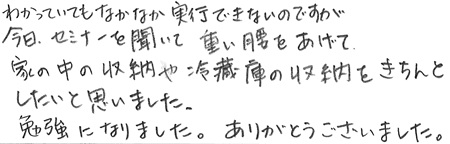 わかっていてもなかなか実行できないのですが
今日、セミナーを聞いて 重い腰をあげて
家の中の収納や冷蔵庫の収納をきちんと
したいと思いました。
勉強になりました。ありがとうございました。